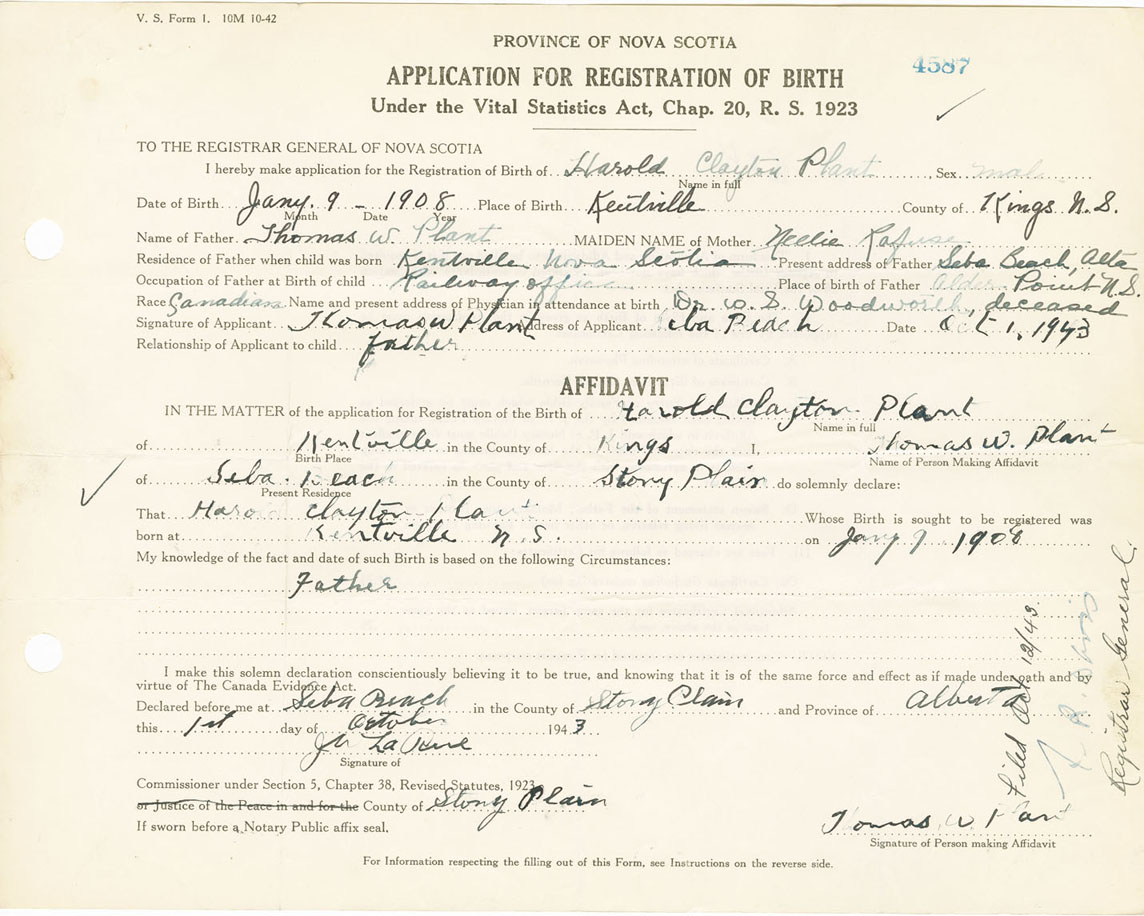 V. S. Form 1. 10M 10-42
PROVINCE OF NOVA SCOTIA
4587
APPLICATION FOR REGISTRATION OF BIRTH
Under the Vital Statistics Act, Chap. 20, R. S. 1923
TO THE REGISTRAR GENERAL OF NOVA SCOTIA
I hereby make application for the Registration of Birth of Harold Clayton Plant Sex mal
Name in full
Date of Birth Jany. 9 - 1908 Place of Birth Kentville County of Kings N.S.
Month Date Year
Name of Father Thomas W. Plant MAIDEN NAME of Mother Nellie Rafuse
Residence of Father when child was born Kentville Nova Scotia Present address of Father Seba Beach, Alta
Occupation of Father at Birth of child Railway office Place of birth of Father Alder Point N.S.
Race Canadian Name and present address of Physician in attendance at birth Dr. W. S. Woodworth, deceased
Signature of Applicant Thomas W Plant Address of Applicant Seba Beach Date Oct 1, 1943
Relationship of Applicant to child father
AFFIDAVIT
IN THE MATTER of the application for Registration of the Birth of Harold Clayton Plant
Name in full
of Kentville in the County of Kings I, Thomas W. Plant
Birth Place Name of Person Making Affidavit
of Seba Beach in the County of Stony Plain do solemnly declare:
Present Residence
That Harold Clayton Plant Whose Birth is sought to be registered was
born at Kentville N.S. on Jany 9 1908
My knowledge of the fact and date of such Birth is based on the following Circumstances:
Father
I make this solemn declaration conscientiously believing it to be true, and knowing that it is of the same force and effect as if made under oath and by
virtue of The Canada Evidence Act.
Declared before me at Seba Beach in the County of Stony Plain and Province of Alberta
this 1st day of October 1943
Signature of
Commissioner under Section 5, Chapter 38, Revised Statutes, 1923
or Justice of the Peace in and for the County of Stony Plain
If sworn before a Notary Public affix seal.
Thomas W Plant
Signature of Person making Affidavit
For Information respecting the filling out of this Form, see Instructions on the reverse side.
Filed Oct 12/43.
Registrar General.